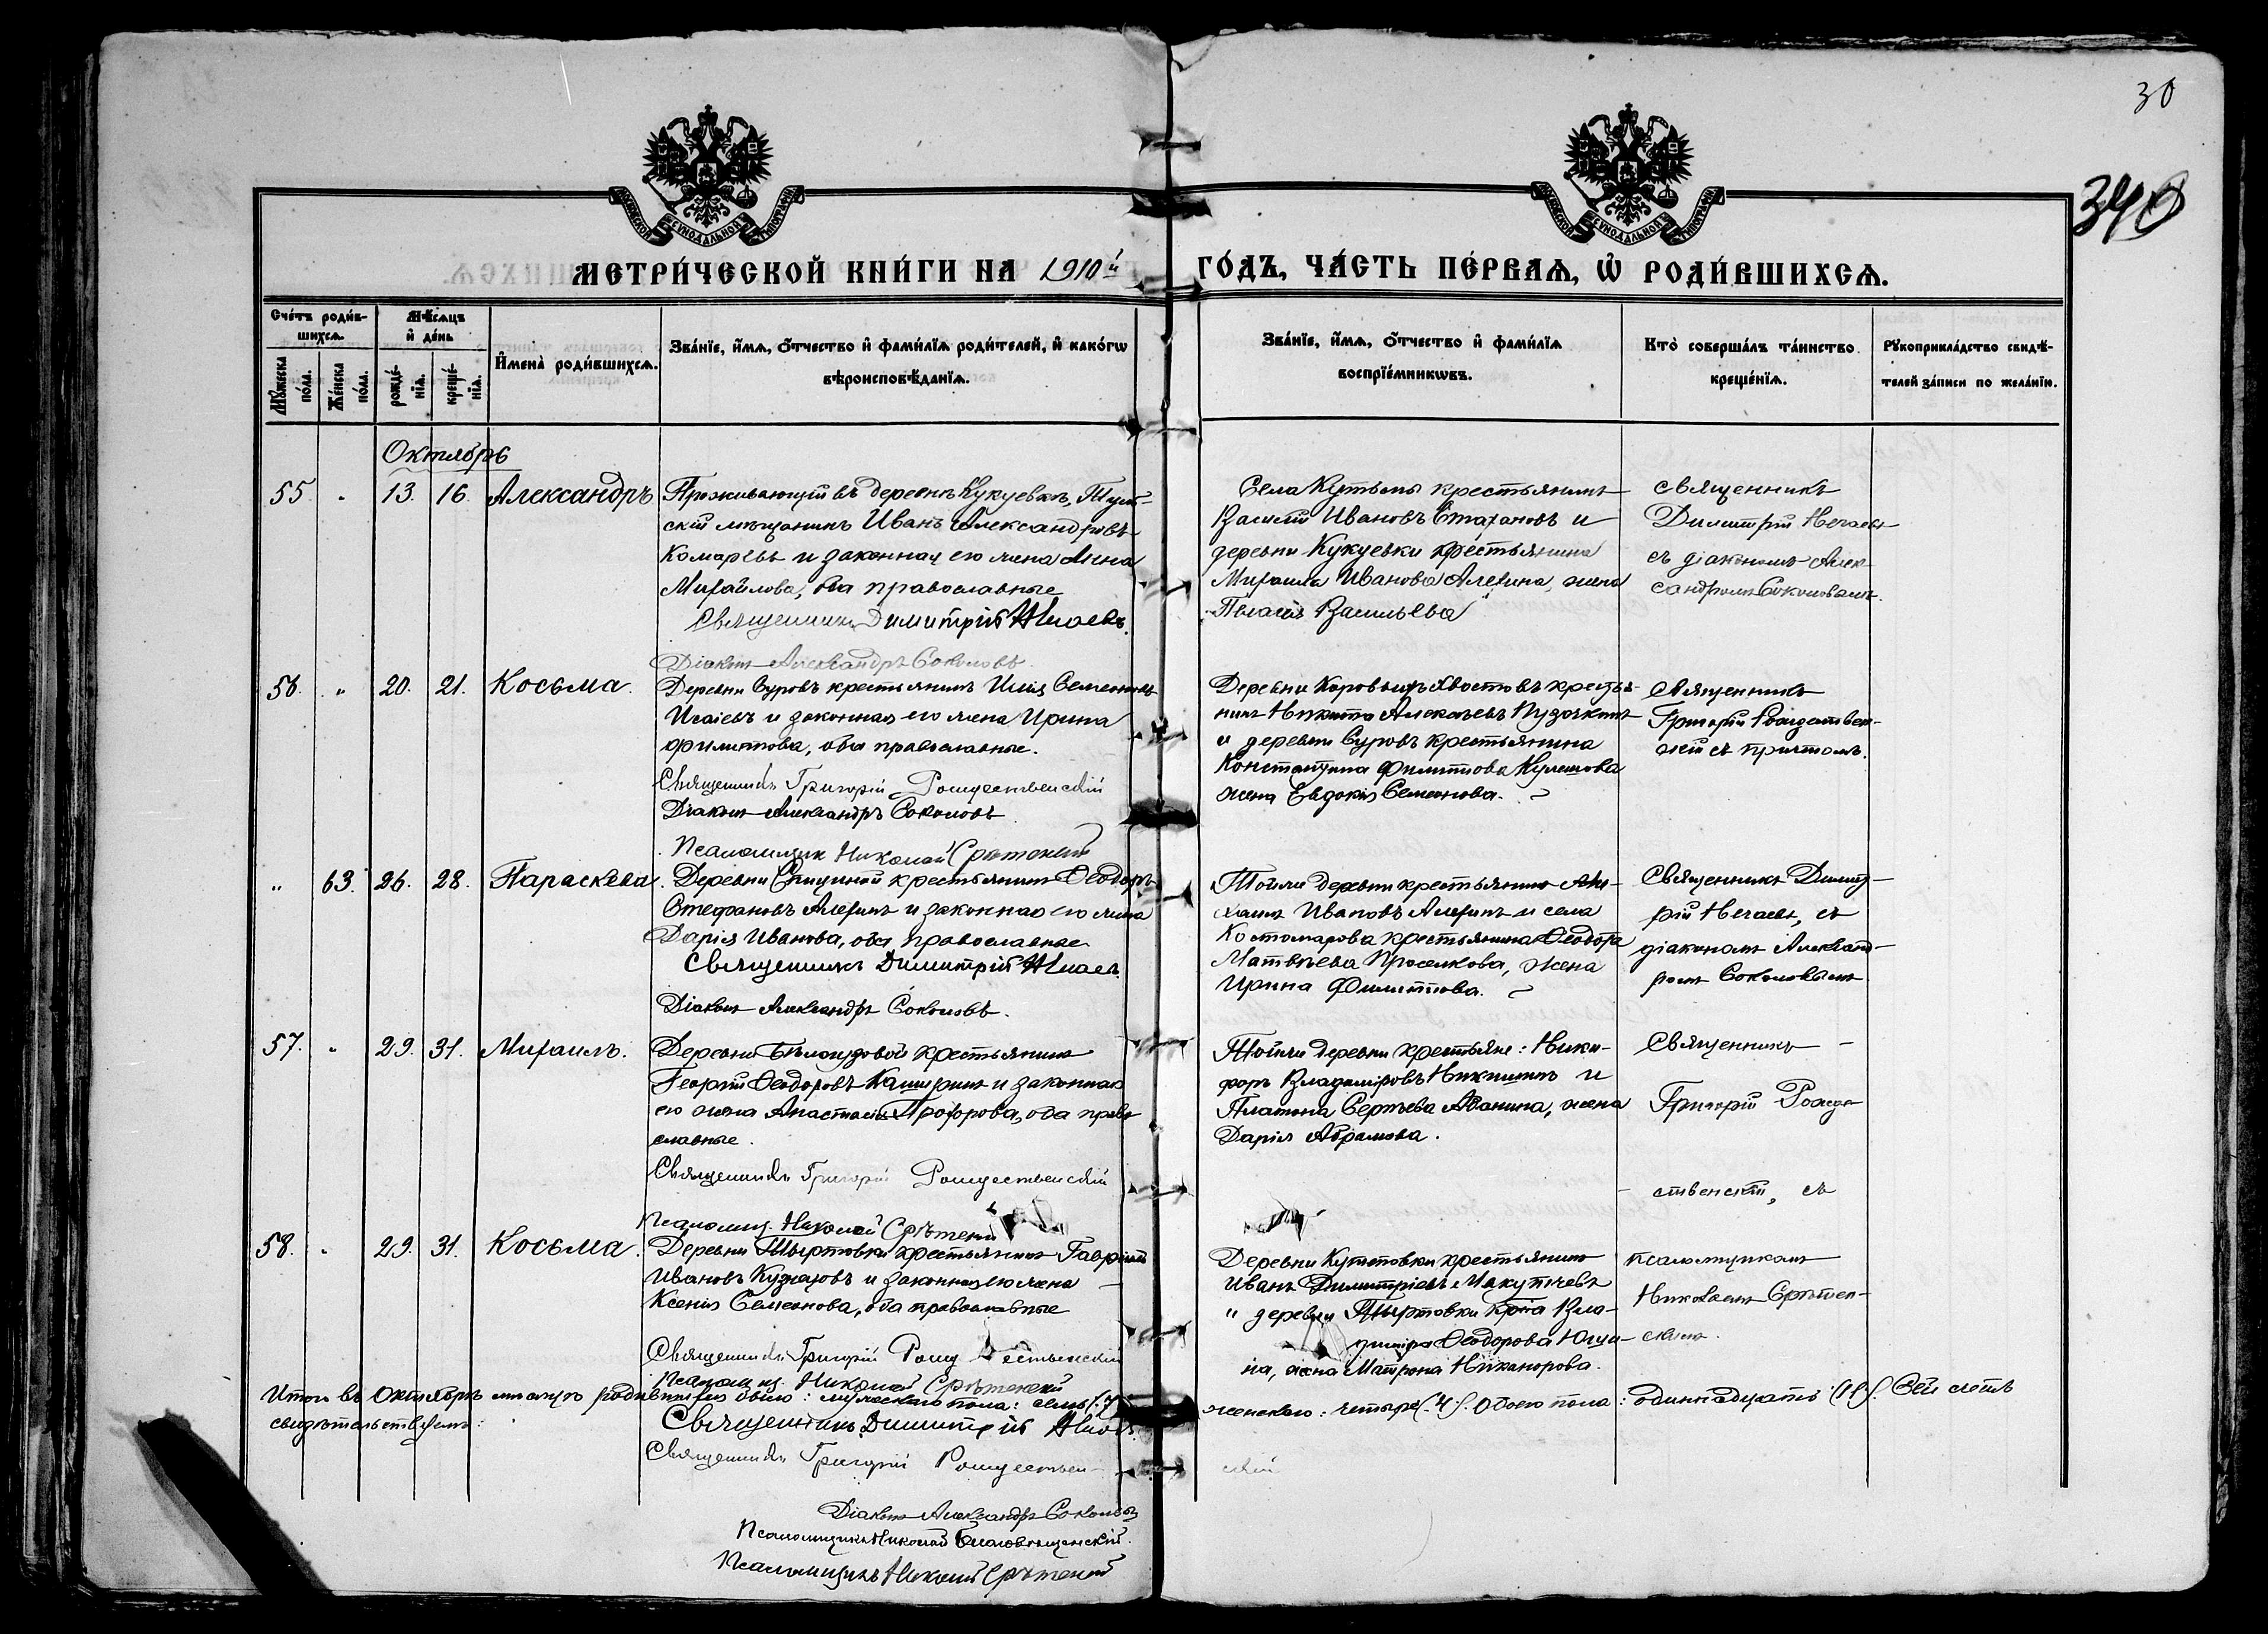 30
340
МЕТРИ́ЧЕСКОЙ КНИ́ГИ НА 1910й ГО́ДЪ, ЧА́СТЬ ПЕ́РВАѦ, Ѡ҆ РОДИ́ВШИХСѦ.
Сче́тъ роди́в-
шихсѧ.
Мꙋ́жеска по́ла.
Же́нска по́ла.
Мѣ́сѧцъ
и҆ де́нь
рожде́-
нїѧ.
креще́-
нїѧ.
И҆мена̀ роди́вшихсѧ.
Зва́нїе, и҆́мѧ, ѻ҆́тчество и҆ фами́лїѧ роди́телей, и҆ како́гѡ
вѣроисповѣ́данїѧ.
Зва́нїе, и҆́мѧ, ѻ҆́тчество и҆ фами́лїѧ
воспрїе́мникѡвъ.
Кто̀ соверша́лъ та́инство
креще́нїѧ.
Рꙋкоприкла́дство свидѣ́-
телей за́писи по жела́нїю.
Октябрь
55. " 13. 16. Александръ
Проживающій въ деревнѣ Кукуевкѣ, Туль-
скій мѣщанинъ Иванъ Александровъ
Комаревъ и законная его жена Анна
Михайлова, оба православные
Священникъ Димитрій Нечаевъ.
Діаконъ Александръ Соколовъ.
Села Кутьмы крестьянинъ
Василій Ивановъ Стахановъ и
деревни Кукуевки крестьянина
Михаила Иванова Алехина, жена
Пелагія Васильева
священникъ
Димитрій Нечаевъ
съ діакономъ Алек-
сандромъ Соколовымъ.
56. " 20. 21. Косьма.
Деревни Суровъ крестьянинъ Илія Семеновъ
Исаіевъ и законная его жена Ирина
Филиппова, оба православные.
Священникъ Григорій Рождественскій
Діаконъ Александръ Соколовъ
Псаломщикъ Николай Срѣтенскій
Деревни Коровьихъ Хвостовъ кресть-
нинъ Никита Алексѣевъ Пузочкинъ
и деревни Суровъ крестьянина
Константина Филиппова Кулешова
жена Евдокія Семенова.
Священникъ
Григорій Рождествен-
скій съ причтомъ.
" 63. 26. 28. Параскева.
Деревни крестьянинъ Ѳеодоръ
Стефановъ Алехинъ и законная его жена
Дарія Иванова, оба православные
Священникъ Димитрій Нечаевъ.
Діаконъ Александръ Соколовъ.
Той же деревни крестьянинъ Ми-
хаилъ Ивановъ Алехинъ и села
Костомарова крестьянина Ѳеодора
Матвѣева Проселкова, жена
Ирина Филиппова.
Священникъ Димит-
рій Нечаевъ, съ
діакономъ Александ-
ромъ Соколовымъ
57. " 29. 31. Михаилъ.
Деревни крестьянинъ
Георгій Ѳеодоровъ Каширинъ и законная
его жена Анастасія Прохорова, оба право
славные.
Священникъ Григорій Рождественскій
Псаломщ. Николай Срѣтенск
Той же деревни крестьяне: Ники-
форъ Владиміровъ Никишинъ и
Платона Сергѣева Аванина, жена
Дарія Абрамова.
Священникъ
Григорій Рожде
ственскій, съ
58. " 29. 31. Косьма.
Деревни Шыртовки крестьянинъ Гавріилъ
Ивановъ Кузнецовъ и законная его жена
Ксенія Семенова, оба православные
Священникъ Григорій Рождественскій
Псаломщ. Николай Срѣтенскій
Деревни крестьянинъ
Иванъ Димитріевъ
и деревни Шыртовки кр–на Вла-
диміра Ѳеодорова
на, жена Матрона Никанорова.
псаломщикомъ
Николаемъ Срѣтен-
скимъ.
Итого въ Октябрѣ мѣсяцѣ родившихся было: мужескаго пола: семь (7)
женскаго: четыре (4). Обоего пола: одиннадцать (11). Сей счетъ
свидѣтельствуемъ:
Священникъ Димитрій Нечаевъ.
Священникъ Григорій Рождествен-
скій
Діаконъ Александръ Соколовъ
Псаломщикъ Николай Благовѣщенскій.
Псаломщикъ Николай Срѣтенскій